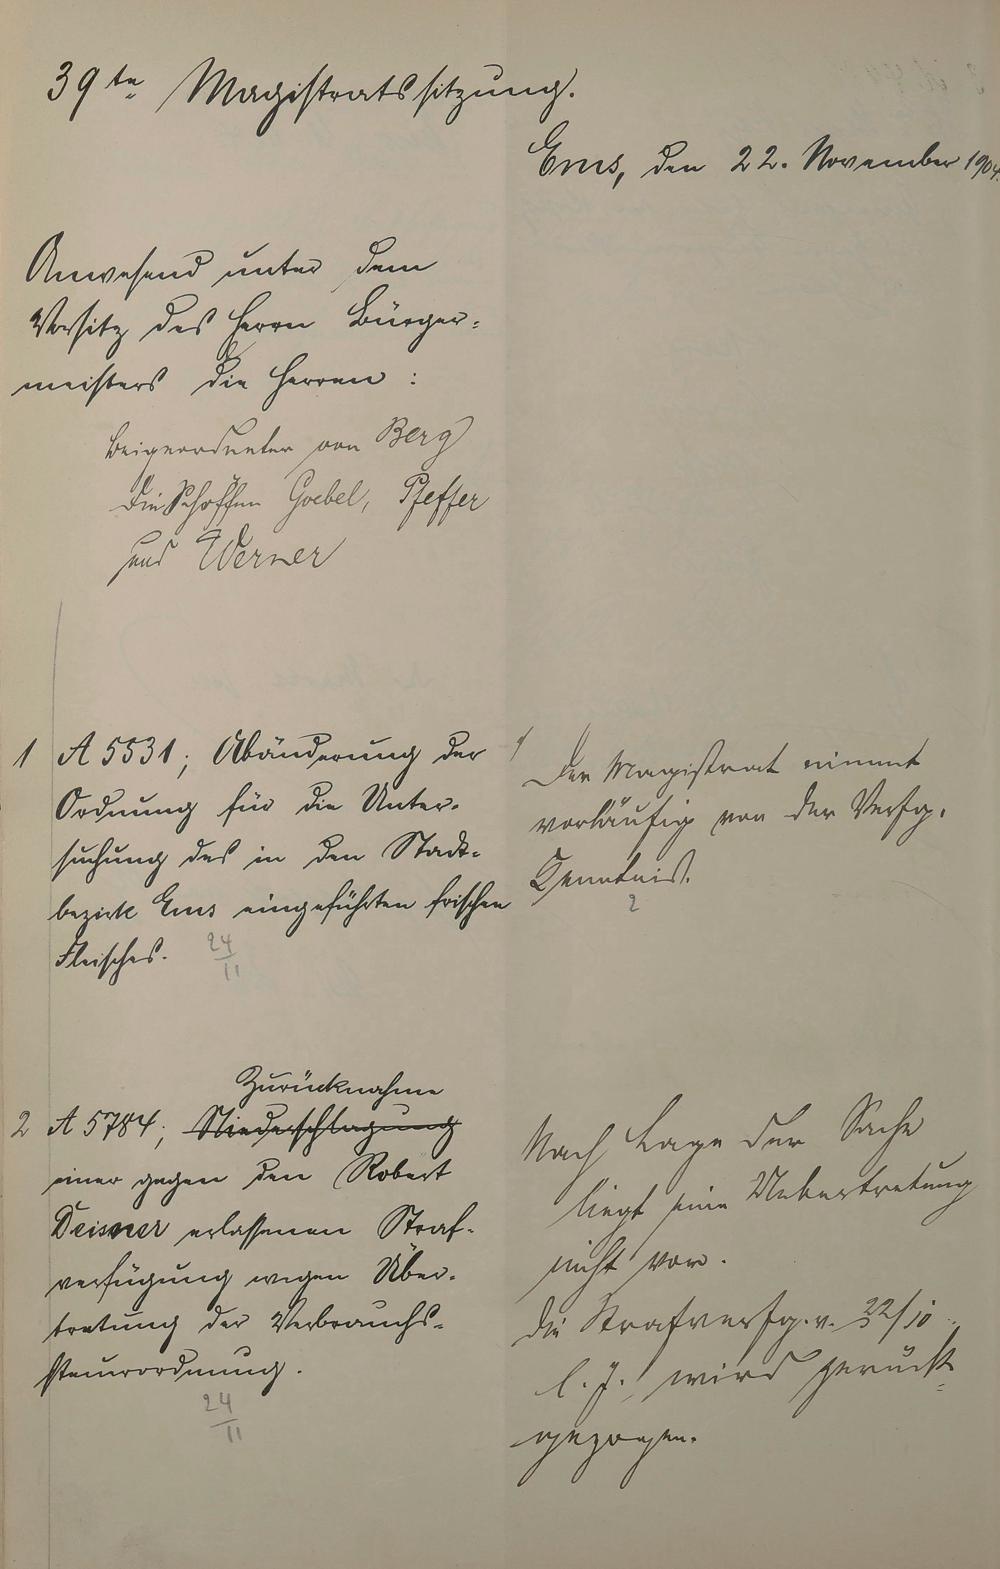 39te Magistratssitzung.
Ems, den 22. November 1904.
Anwesend unter dem
Vorsitz des Herrn Bürger-
meisters die Herren:
Beigeordneter von Berg
die Schöffen Goebel, Pfeffer
und Werner
1 A 5531; Abänderung der
Ordnung für die Unter-
suchung des in den Stadt-
bezirk Ems eingeführten frischen
Fleisches.
24/11
1/ Der Magistrat nimmt
vorläufig von der Verfg.
Kenntnis.
Zurücknahme
2 A 5784; Niederschlagung
einer gegen den Robert
Deisner erlassenen Straf-
verfügung wegen Über-
tretung der Verbrauchs-
steuerordnung.
24/11
2
Nach Lage der Sache
liegt eine Uebertretung
nicht vor.
Die Strafverfg. v. 22/10
l. J. wird zurück-
gezogen.